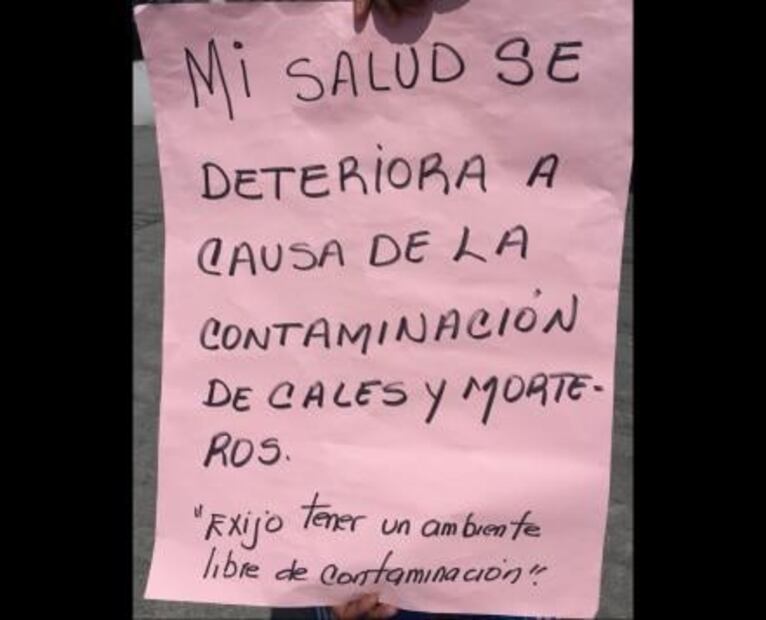 Mi SALUD SE
DETERiORA A
CAUSA DE LA
CONTAMINACIÓN
DE CALES Y MORTE-
ROS.
"Exijo tener un ambiente
libre de contaminación".